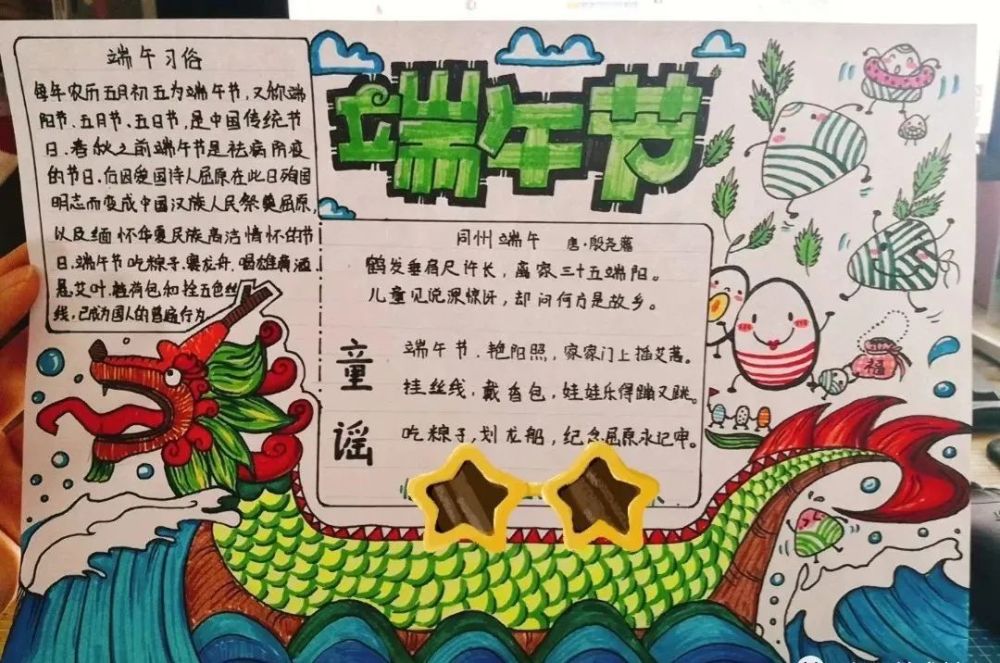 端午习俗
每年农历五月初五为端午节,又称端
阳节、五月节、五日节,是中国传统节
日.春秋之前端午节是祛病防疫
的节日.后因爱国诗人屈原在此日殉国
明志而变成中国汉族人民祭奠屈原,
以及缅怀华夏民族高洁情怀的节
日.端午节吃粽子.赛龙舟.喝雄黄酒
悬艾叶.挂荷包和拴五色丝
线,已成为国人的普遍行为
端午节
同州端午 唐·殷尧藩
鹤发垂肩尺许长,离家三十五端阳。
儿童见说深惊讶,却问何方是故乡。
童谣
端午节、艳阳照,家家门上插艾蒿。
挂丝线,戴香包,娃娃乐得蹦又跳。
吃粽子,划龙船,纪念屈原永记牢。
福